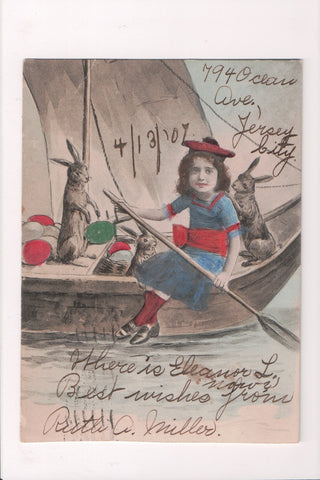 794 Ocean
Ave.
Jersey
City.
4/13/'07
Where is Eleanor L.
now?
Best wishes from
Ruth A. Miller.